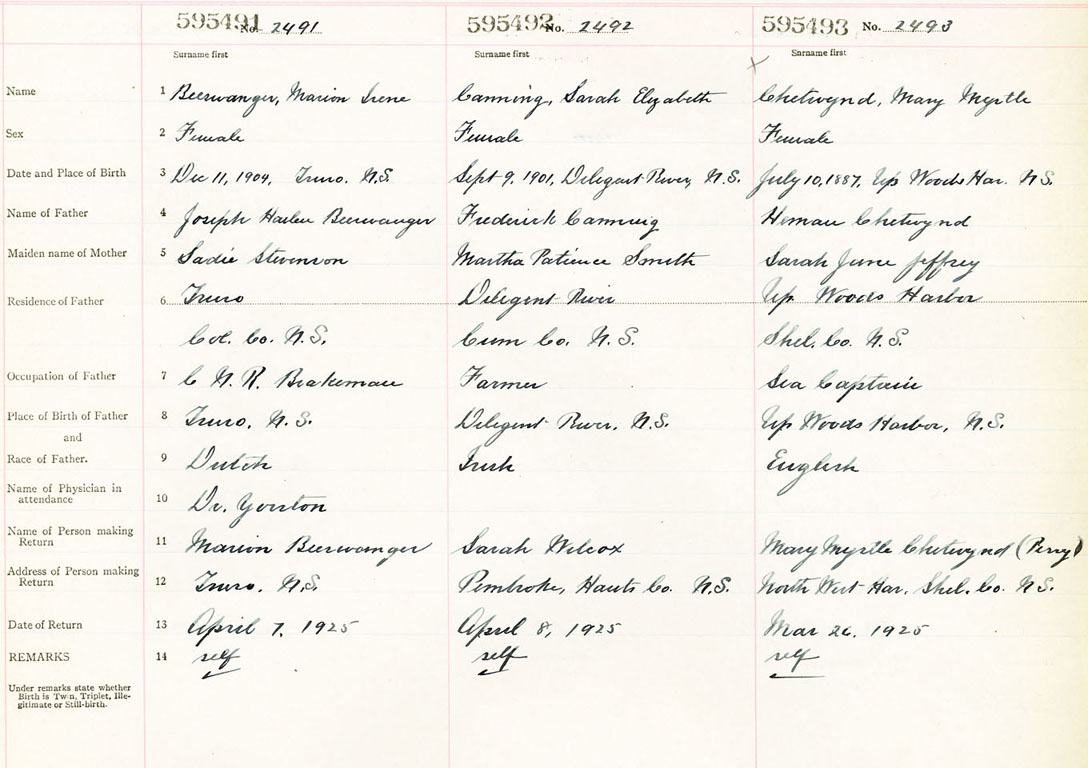 595491 No. 2491 595492 No. 2492 595493 No. 2493
Surname first Surname first Surname first
Name 1 Beerwanger, Marion Irene Canning, Sarah Elizabeth Chetwynd, Mary Myrtle
Sex 2 Female Female Female
Date and Place of Birth 3 Dec 11, 1904, Truro. N.S. Sept 9, 1901, Diligent River, N.S. July 10, 1887, Up Woods Har. N.S.
Name of Father 4 Joseph Beerwanger Frederick Canning Heman Chetwynd
Maiden name of Mother 5 Sadie Stevenson Martha Patience Smith Sarah Jane Jeffrey
Residence of Father 6 Truro Diligent River Up Woods Harbor
Col. Co. N.S. Cum Co. N.S. Shel. Co. N.S.
Occupation of Father 7 C N. R. Brakeman Farmer Sea Captain
Place of Birth of Father 8 Truro, N.S. Diligent River, N.S. Up Woods Harbor, N.S.
and
Race of Father. 9 Dutch Irish English
Name of Physician in
attendance 10 Dr. Yorston
Name of Person making
Return 11 Marion Beerwanger Sarah Wilcox Mary Myrtle Chetwynd (Perry)
Address of Person making
Return 12 Truro, N.S. Pembroke, Hants Co. N.S. North West Har, Shel. Co. N.S.
Date of Return 13 April 7, 1925 April 8, 1925 Mar 26, 1925
REMARKS 14 self self self
Under remarks state whether
Birth is Twin, Triplet, Ille-
gitimate or Still-birth.